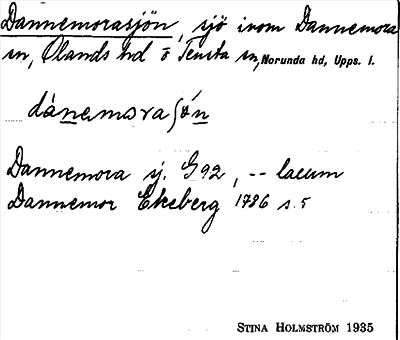 Dannemorasjön, sjö inom Dannemora
sn, Olands hd o Tensta sn, Norunda hd, Upps. l.
dánemoraʃø̀n
Dannemora sj. G92, -- lacum
Dannemor Ekeberg 1786 s. 5
STINA HOLMSTRÖM 1935